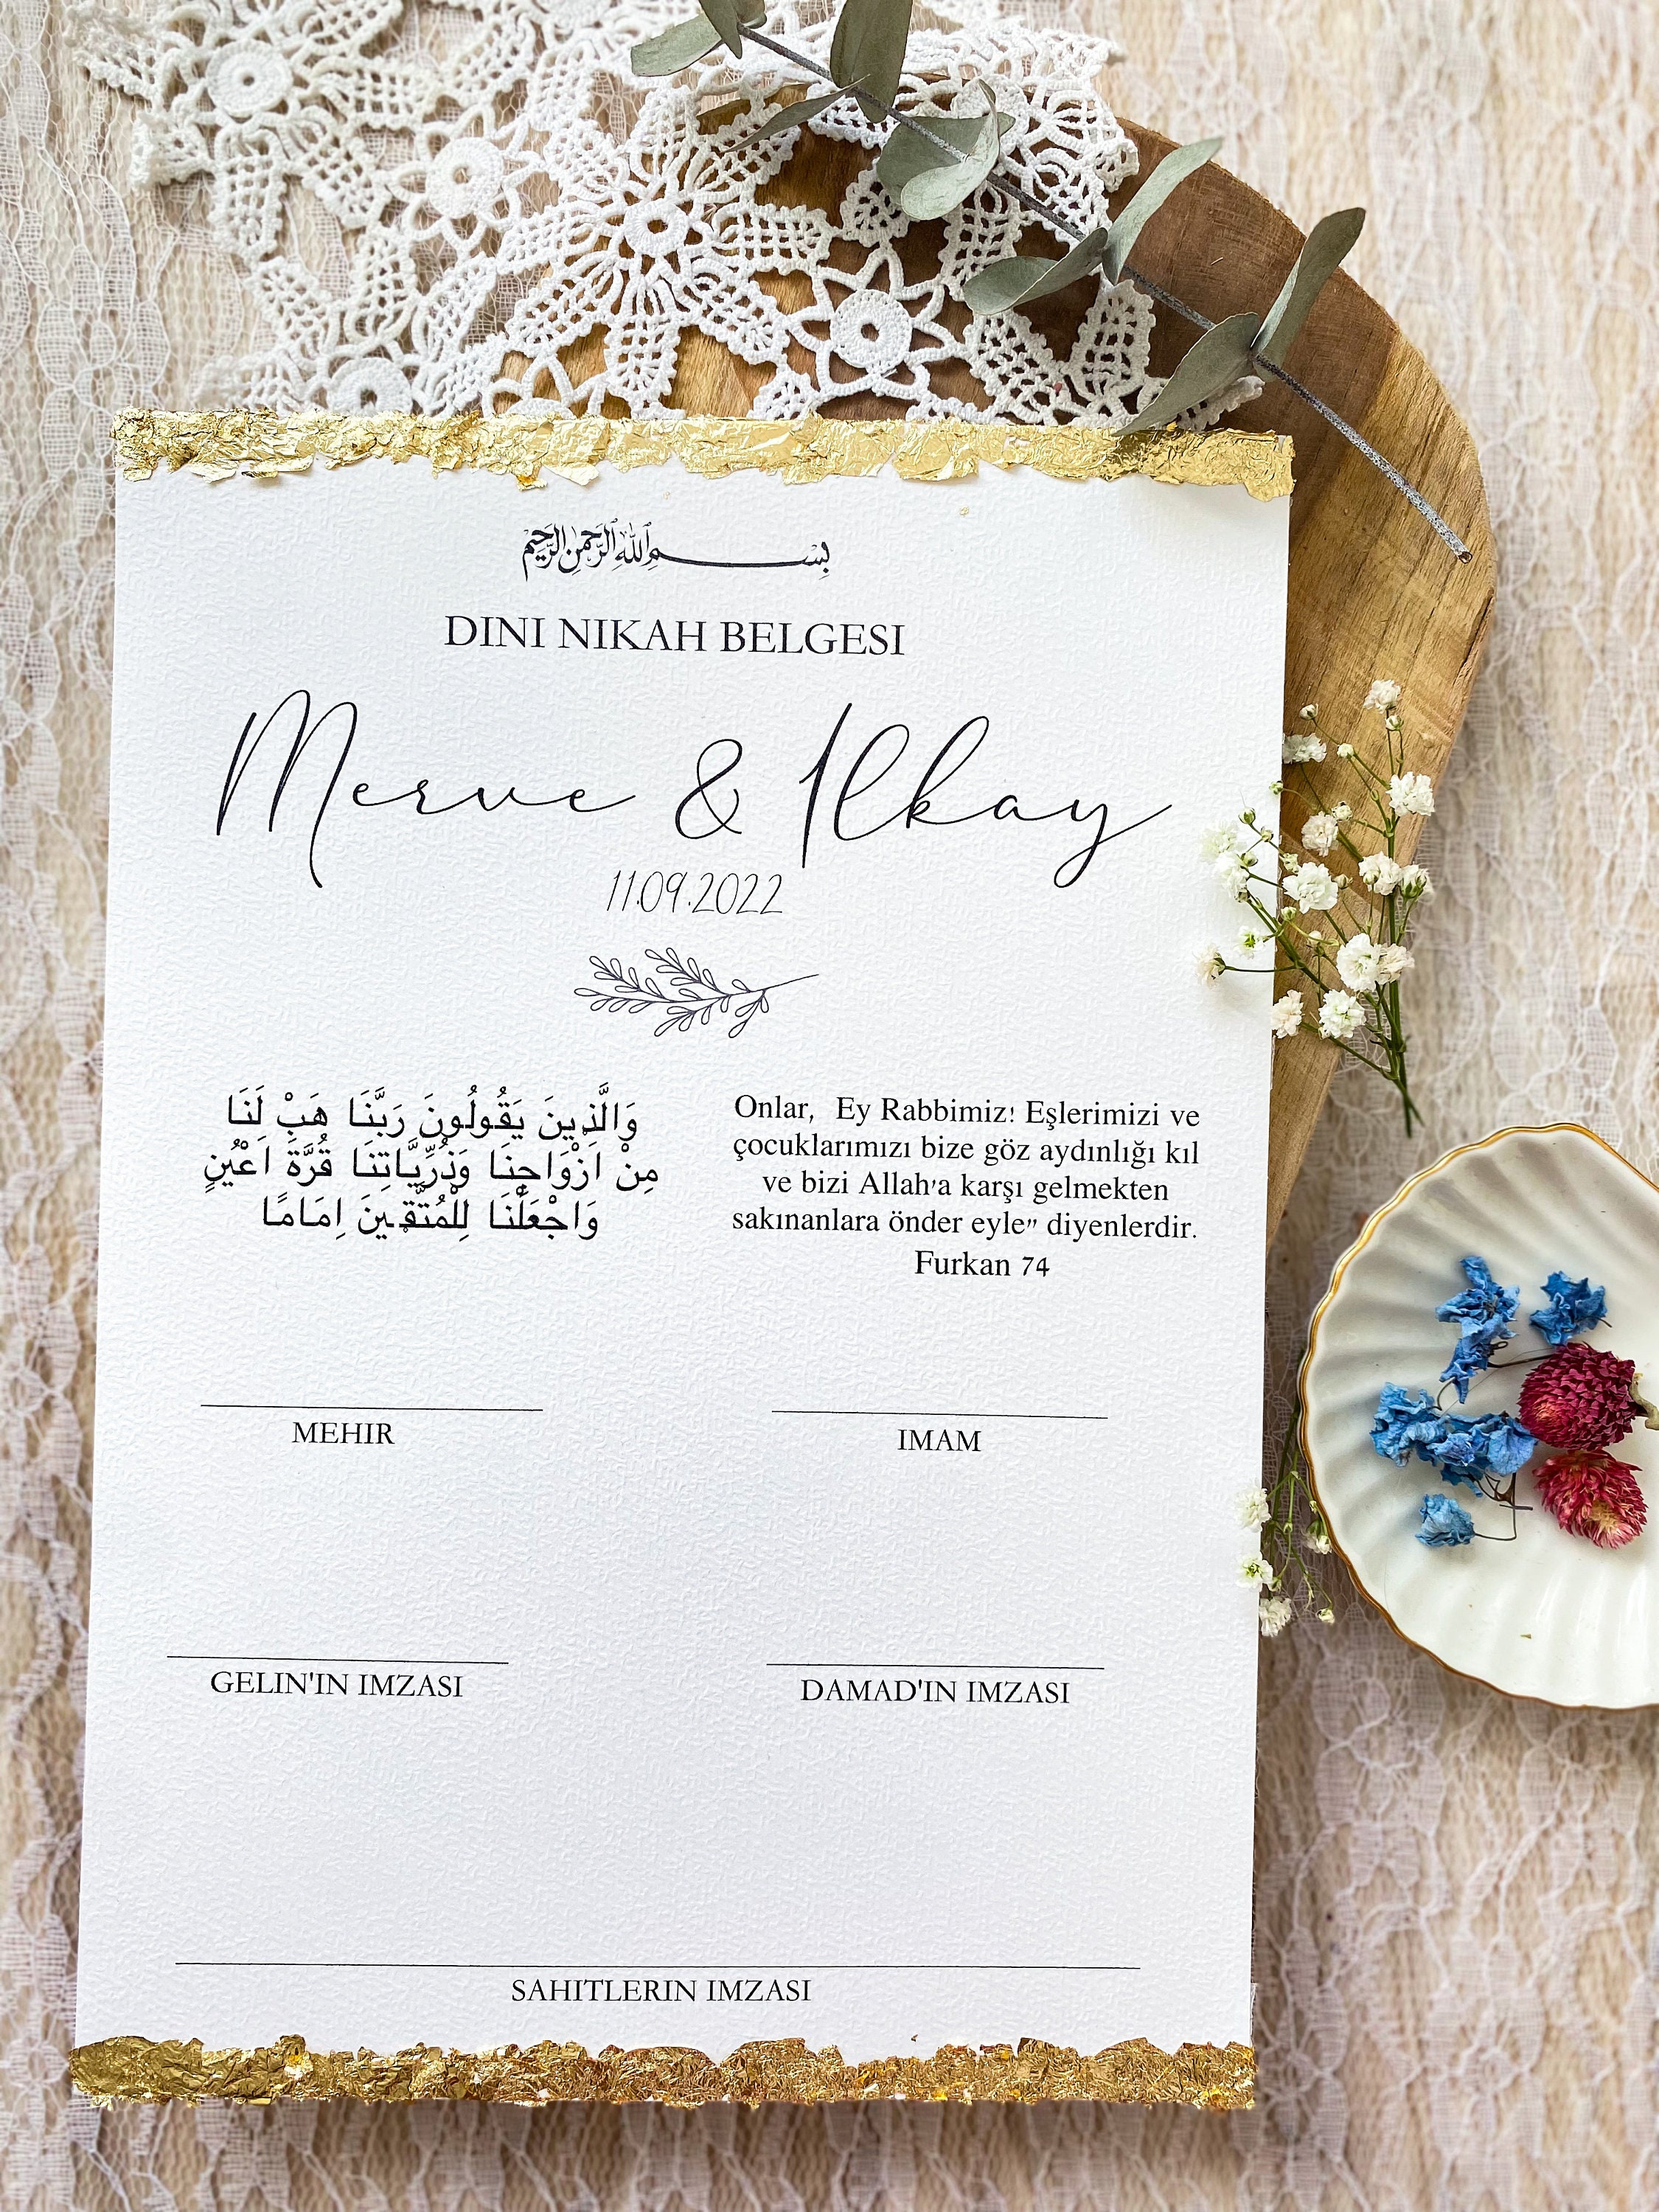 بِسْمِ اللهِ الرَّحْمٰنِ الرَّحِيمِ
DINI NIKAH BELGESI
Merve & Ilkay
11.09.2022
وَالَّذِينَ يَقُولُونَ رَبَّنَا هَبْ لَنَا
مِنْ اَزْوَاجِنَا وَذُرِّيَّاتِنَا قُرَّةَ اَعْيُنٍ
وَاجْعَلْنَا لِلْمُتَّقِينَ اِمَامًا
Onlar, Ey Rabbimiz! Eşlerimizi ve
çocuklarımızı bize göz aydınlığı kıl
ve bizi Allah'a karşı gelmekten
sakınanlara önder eyle” diyenlerdir.
Furkan 74
MEHIR
IMAM
GELIN'IN IMZASI
DAMAD'IN IMZASI
SAHITLERIN IMZASI